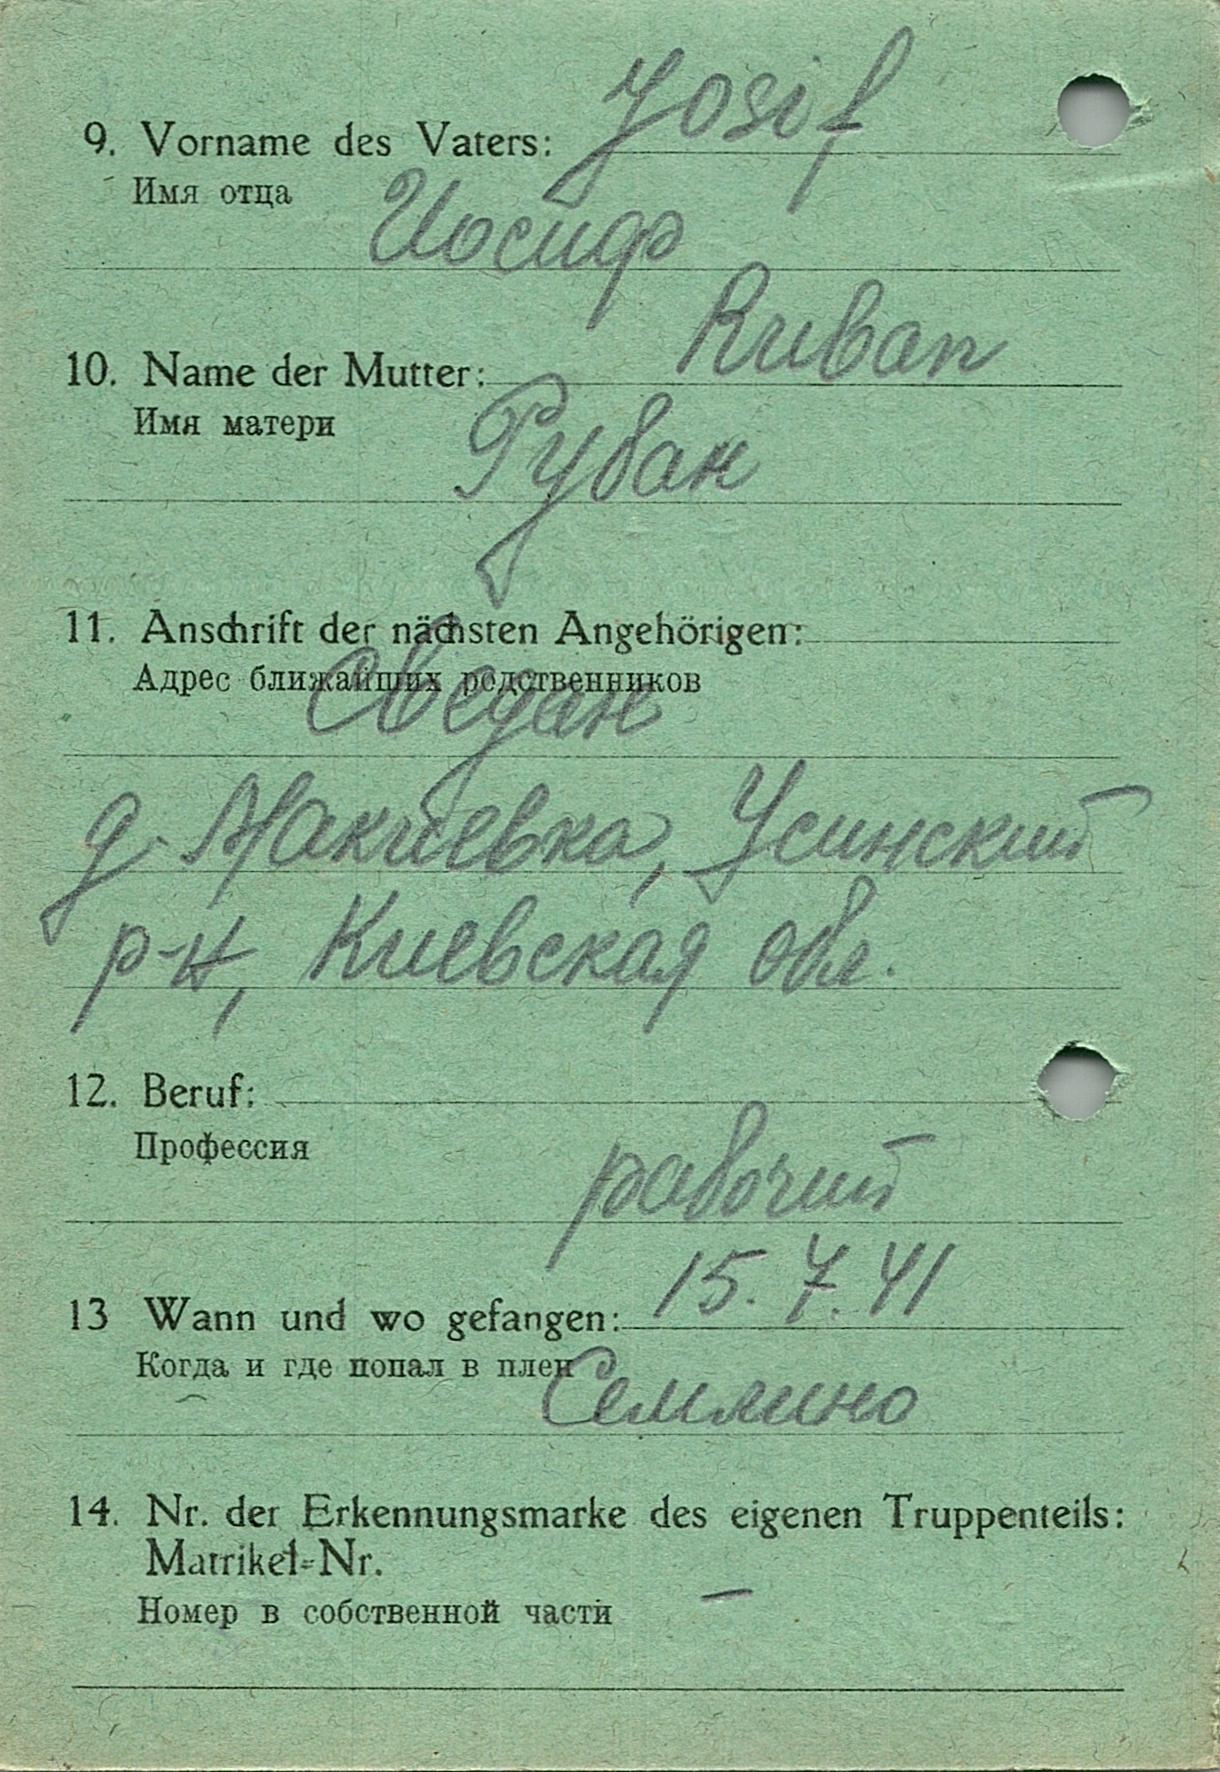 9. Vorname des Vaters: Josif
Имя отца
Иосиф
10. Name der Mutter: Ruban
Имя матери
Рубан
11. Anschrift der nächsten Angehörigen:
Адрес ближайших родственников
Сведан
д. Макиевка, Усинский
р-н, Киевская обл.
12. Beruf:
Профессия
рабочий
13 Wann und wo gefangen: 15.7.41
Когда и где попал в плен
Семлино
14. Nr. der Erkennungsmarke des eigenen Truppenteils:
Matrikel-Nr.
Номер в собственной части –